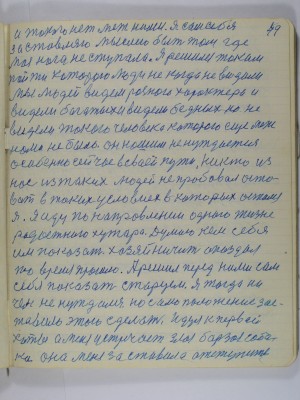 79
и такого нет меж ними. Я сам себя
заставляю мыслью быть там где
моя нога не ступала. Я решил таким
пойти которого люди не когда не видали
Мы людей видели разного характера и
видели богатых и видели бедных но не
видели такого человека которого еще меж
нами не было. он ношим не нуждается
особенно сейчас в своей пути, никто из
нас из таких людей не пробовал оста-
ват в таких условиях в которых остался
я. Я иду по направлении одного жизне
радостного хутора. Думаю кем себя
им показат. хозяйничит опоздал
это время прошло. Я решил перед ними сам
себя показат старцом. Я тогда ни
чем не нуждался но само положение зас-
тавило этого сделать. Иду к первой
хаты а меня встречает злая борзое соба-
ка она меня заставила отступить